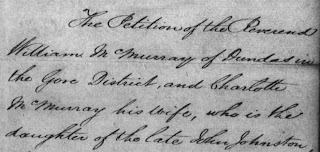 The Petition of the Reverend
William McMurray of Dundas in
the Gore District, and Charlotte
McMurray his wife, who is the
daughter of the late John Johnston,